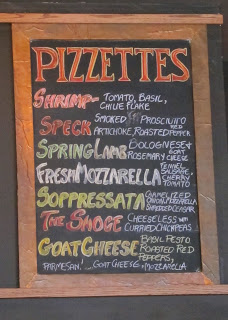 PIZZETTES
SHRIMP- TOMATO, BASIL, CHILIE FLAKE
SPECK SMOKED PROSCIUTTO ARTICHOKE, ROASTED RED PEPPER
SPRING LAMB BOLOGNESE & ROSEMARY GOAT CHEESE
FRESH MOZZARELLA FENNEL SAUSAGE, CHERRY TOMATO
SOPPRESSATA CARAMELIZED ONION, MOZZARELLA SHREDDED CEASAR
THE SMOGE CHEESELESS WITH CURRIED CHICKPEAS
GOAT CHEESE BASIL PESTO ROASTED RED PEPPERS,
PARMESAN!....GOAT CHEESE, & MOZZARELLA